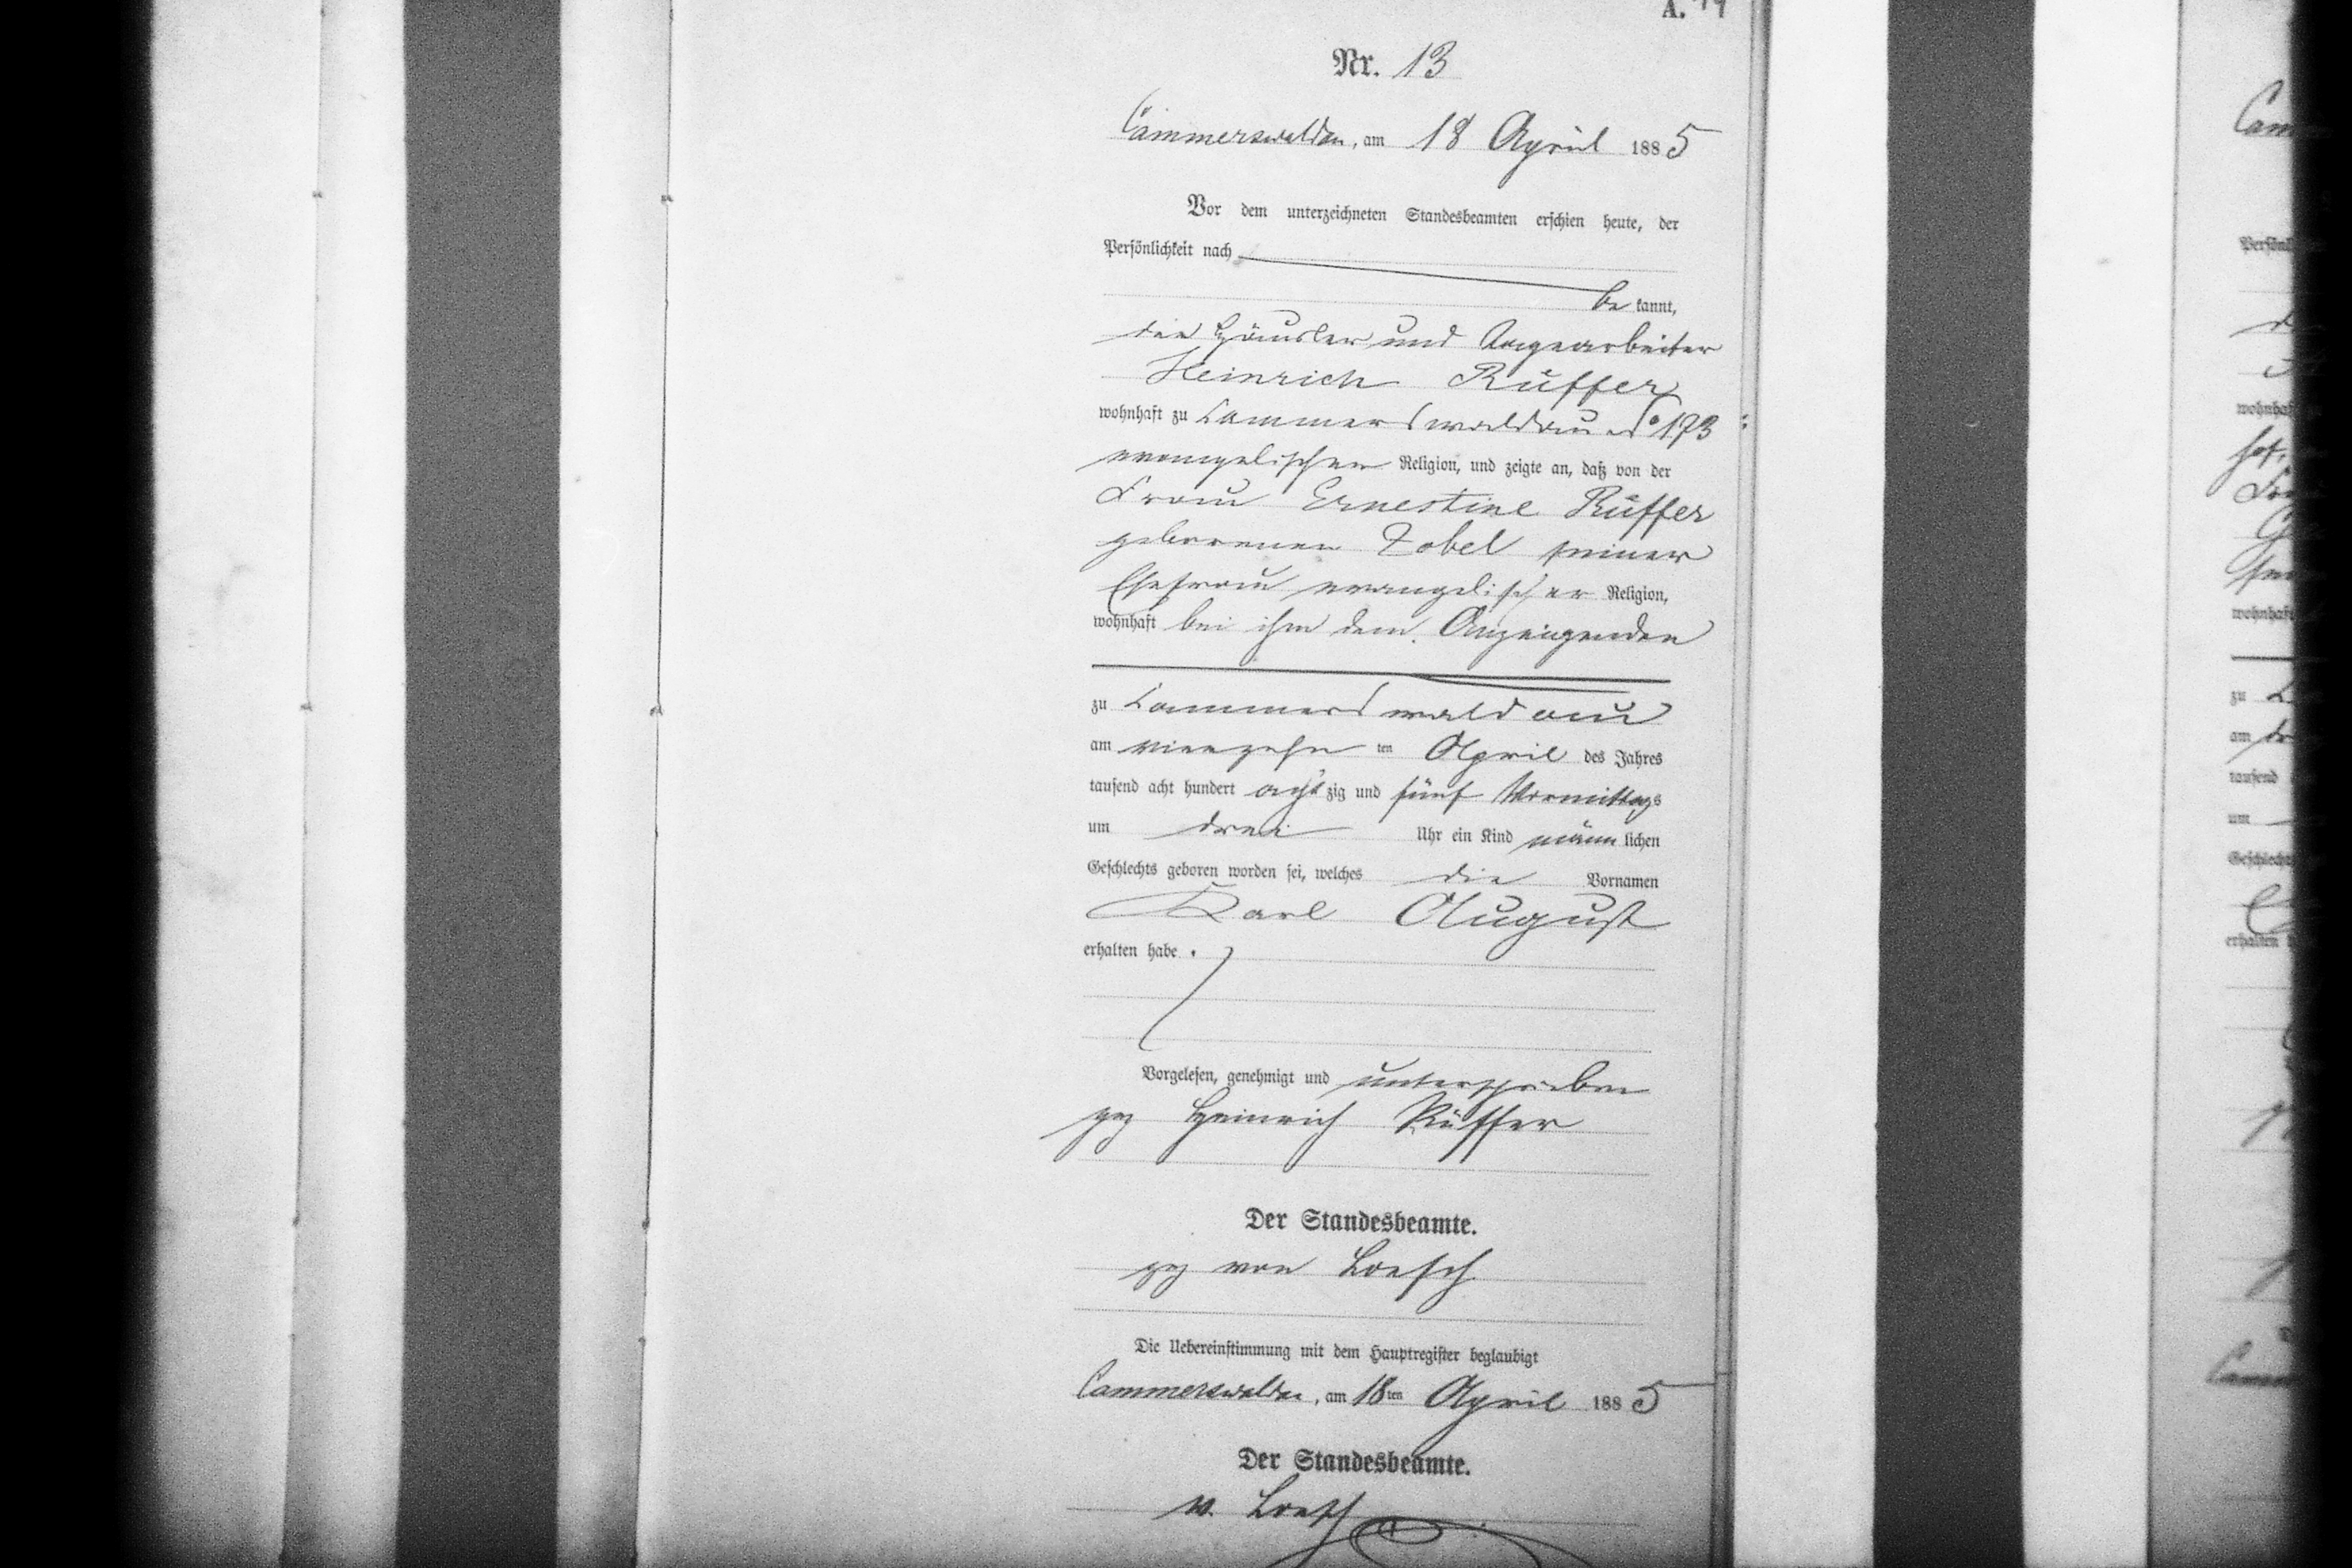 A.
Nr. 13
Cammerswaldau, am 18 April 1885
Vor dem unterzeichneten Standesbeamten erschien heute, der
Persönlichkeit nach
be kannt,
der Häusler und Tagearbeiter
Heinrich Rüffer
wohnhaft zu Cammerswaldau No 173
evangelischer Religion, und zeigte an, daß von der
Frau Ernestine Rüffer
geborenen Zobel seiner
Ehefrau evangelischer Religion,
wohnhaft bei ihm dem Anzeigenden
zu Cammerswaldau
am vierzehn ten April des Jahres
tausend acht hundert achtzig und fünf Vormittags
um drei Uhr ein Kind männlichen
Geschlechts geboren worden sei, welches die Vornamen
Karl August
erhalten habe.
Vorgelesen, genehmigt und unterschrieben
gez Heinrich Rüffer
Der Standesbeamte.
gez von Loesch
Die Uebereinstimmung mit dem Hauptregister beglaubigt
Cammerswaldau, am 18ten April 1885
Der Standesbeamte.
v. Loesch